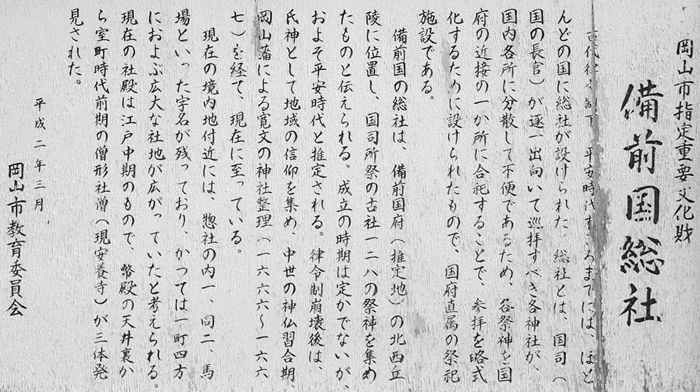 岡山市指定重要文化財
備前国総社
古代律令制下 平安時代すころまでには、ほと
んどの国に総社が設けられた。総社とは、国司(
国の長官)が逐一出向いて巡拝すべき各神社が、
国内各所に分散して不便であるため、各祭神を国
府の近接の一か所に合祀することで、参拝を略式
化するために設けられたもので、国府直属の祭祀
施設である。
備前国の総社は、備前国府(推定地)の北西丘
陵に位置し、国司所祭の古社一二八の祭神を集め
たものと伝えられる。成立の時期は定かでないが、
およそ平安時代と推定される。律令制崩壊後は、
氏神として地域の信仰を集め 中世の神仏習合期、
岡山藩による寛文の神社整理(一六六六〜一六六
七)を経て、現在に至っている。
現在の境内地付近には、惣社の内一、同二、馬
場といった字名が残っており、かつては一町四方
におよぶ広大な社地が広がっていたと考えられる。
現在の社殿は江戸中期のもので、幣殿の天井裏か
ら室町時代前期の僧形社僧(現安養寺)が三体発
見された。
平成二年三月
岡山市教育委員会